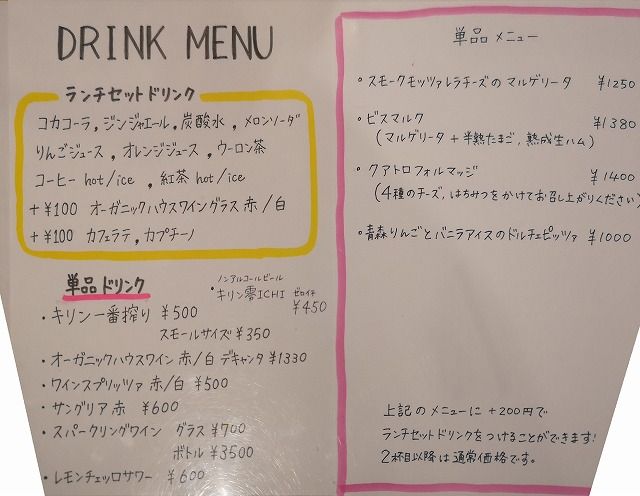 DRINK MENU
ランチセットドリンク
コカコーラ, ジンジャエール, 炭酸水, メロンソーダ
りんごジュース, オレンジジュース, ウーロン茶
コーヒー hot/ice , 紅茶 hot/ice
+¥100 オーガニックハウスワイングラス 赤/白
+¥100 カフェラテ, カプチーノ
単品ドリンク
・キリン一番搾り ¥500
スモールサイズ ¥350
ノンアルコールビール
・キリン零ICHI ゼロイチ
¥450
・オーガニックハウスワイン 赤/白 デキャンタ ¥1330
・ワインスプリッツァ 赤/白 ¥500
・サングリア赤 ¥600
・スパークリングワイン グラス ¥700
ボトル ¥3500
・レモンチェッロサワー ¥600
単品メニュー
・スモークモッツァレラチーズの マルゲリータ ¥1250
・ビスマルク ¥1380
(マルゲリータ + 半熟たまご, 熟成生ハム)
・クアトロフォルマッジ ¥1400
(4種のチーズ, はちみつをかけてお召し上がりください)
・青森りんごとバニラアイスのドルチェピッツァ ¥1000
上記のメニューに +200円で
ランチセットドリンクをつけることができます!
2杯目以降は通常価格です。